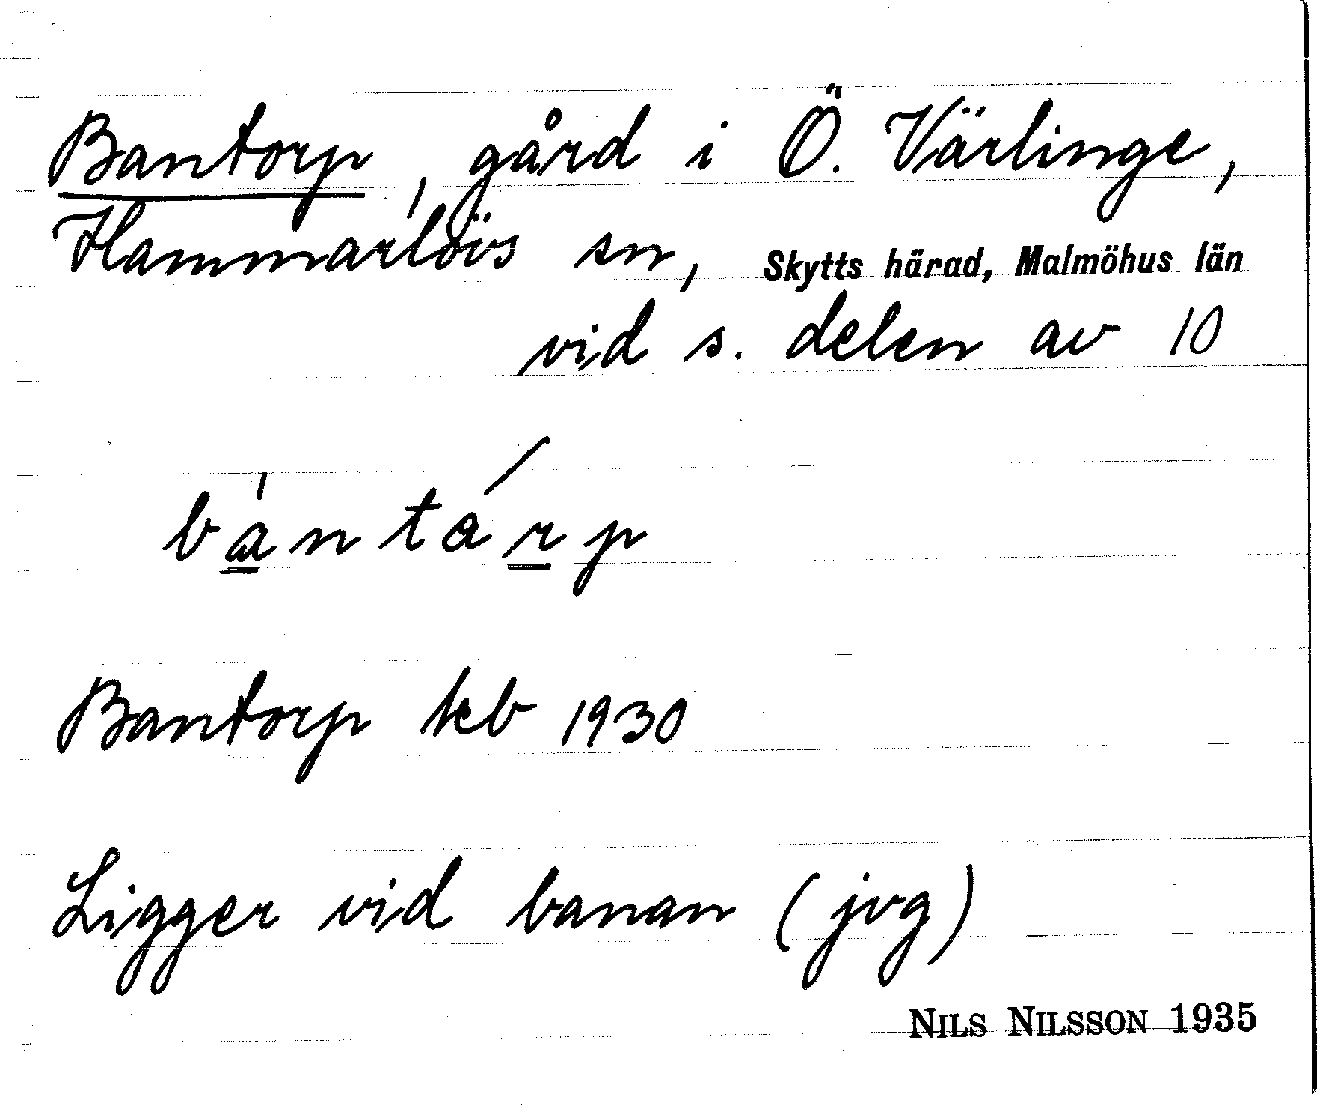 Bantorp, gård i Ö. Värlinge,
Hammarlövs sn, Skytts härad, Malmöhus län
vid s. delen av 10
bántárp
Bantorp keb 1930
Ligger vid banan (jvg)
NILS NILSSON 1935